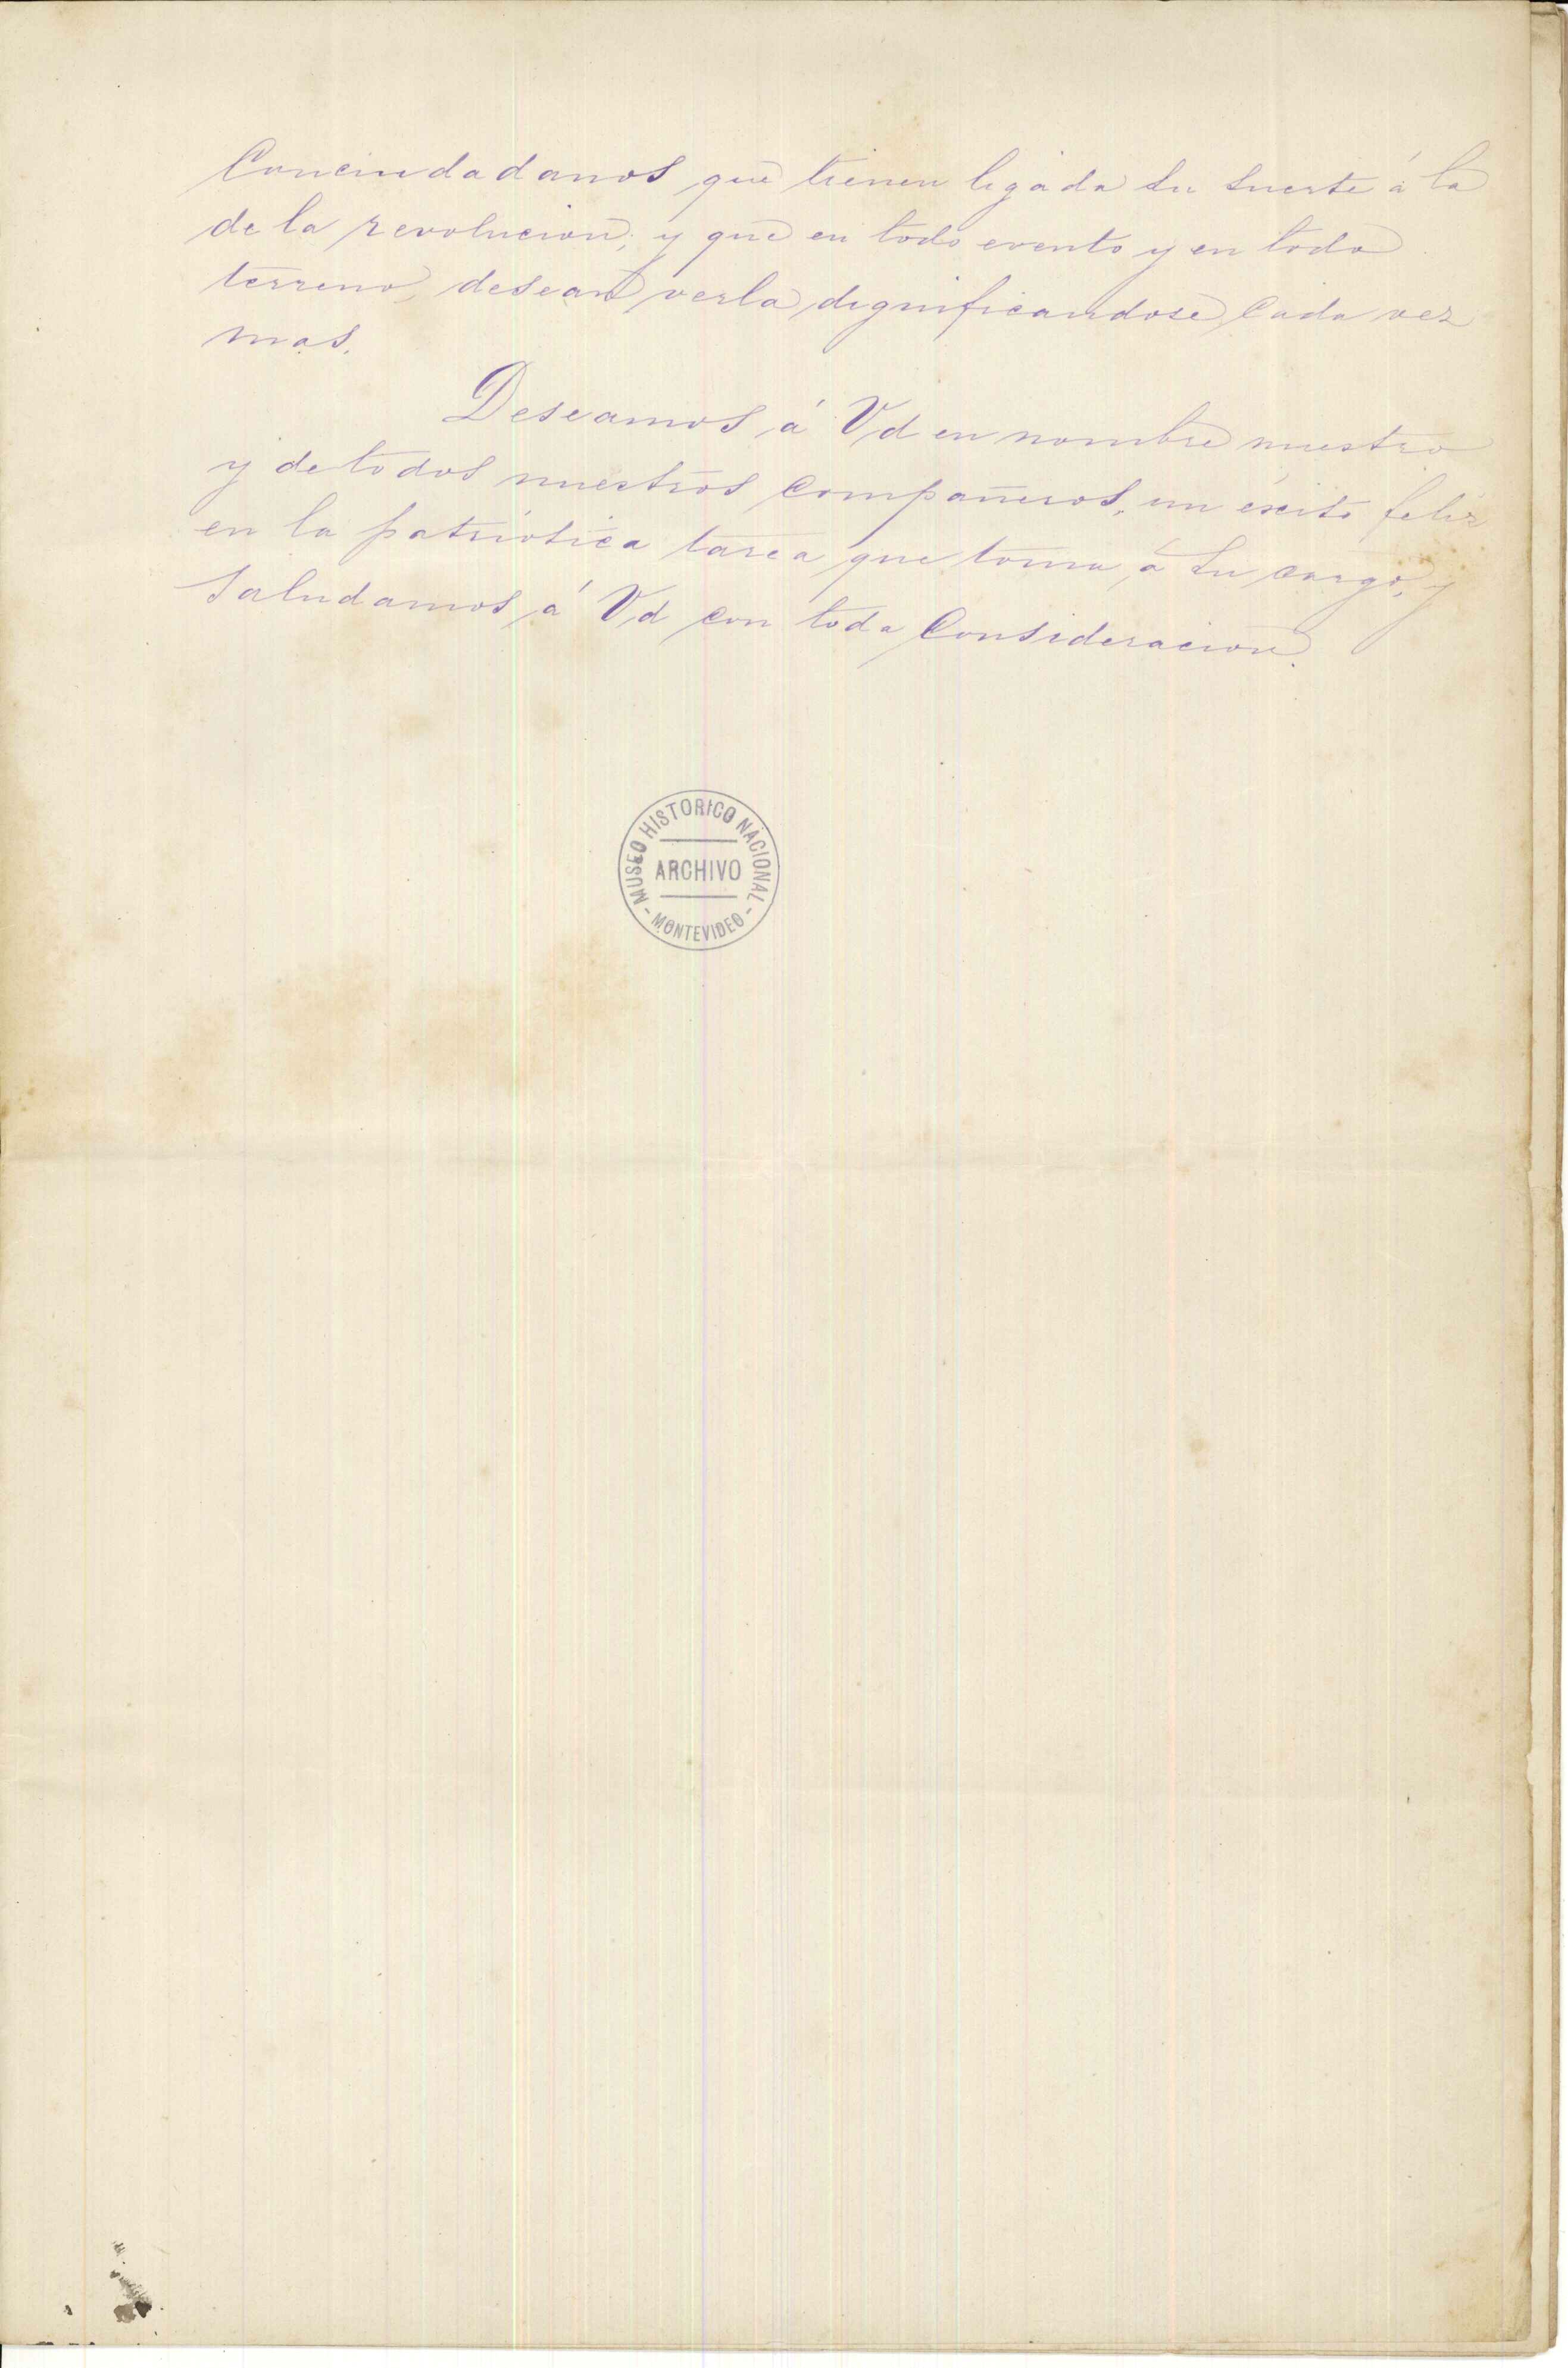 Conciudadanos que tienen ligada su suerte á la
de la revolucion; y que en todo evento y en todo
terreno, desean verla dignificandose cada vez
mas.
Deseamos á Vd en nombre nuestro
y de todos nuestros compañeros, un éxito feliz
en la patriótica tarea que toma á su cargo, y
saludamos á Vd con toda consideracion.
MUSEO HISTORICO NACIONAL
ARCHIVO
- MONTEVIDEO -